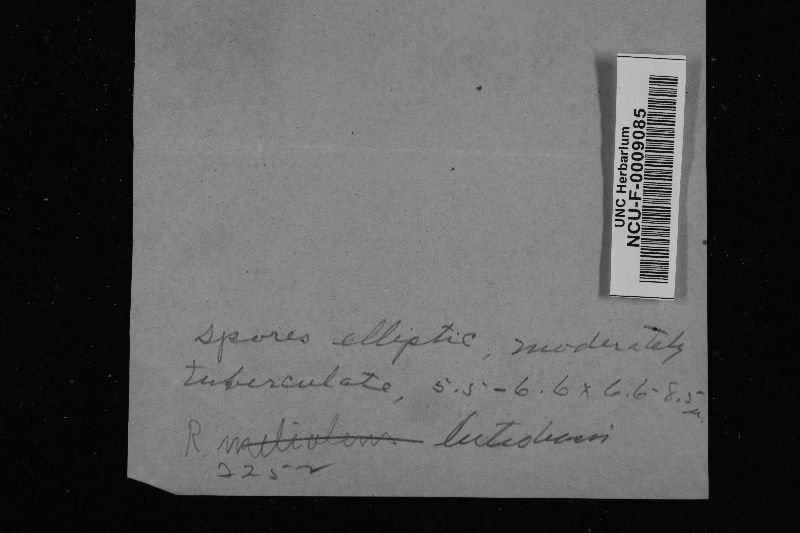 UNC Herbarium
NCU-F-0009085
spores elliptic, moderately
tuberculate, 5.5-6.6 x 6.6-8.5
µ
R.
2252